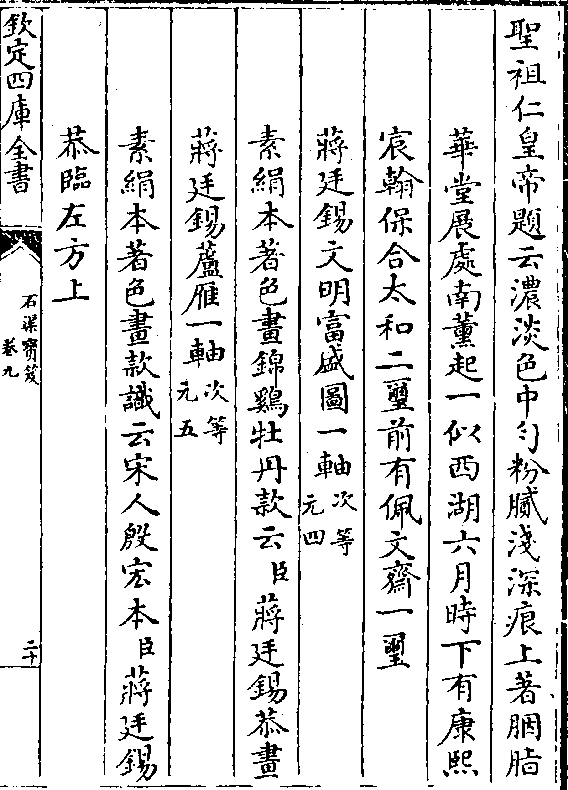 聖祖仁皇帝題云濃淡色中勻粉膩淺深痕上著胭脂
華堂展處南薰起一似西湖六月時下有康熙
宸翰保合太和二璽前有佩文齋一璽
蔣廷錫文明富盛圖一軸次等元四
素絹本著色畫錦鷄牡丹款云臣蔣廷錫恭畫
蔣廷錫蘆雁一軸次等元五
素絹本著色畫款識云宋人殷宏本臣蔣廷錫
恭臨左方上
欽定四庫全書
石渠寶笈
卷九
二十